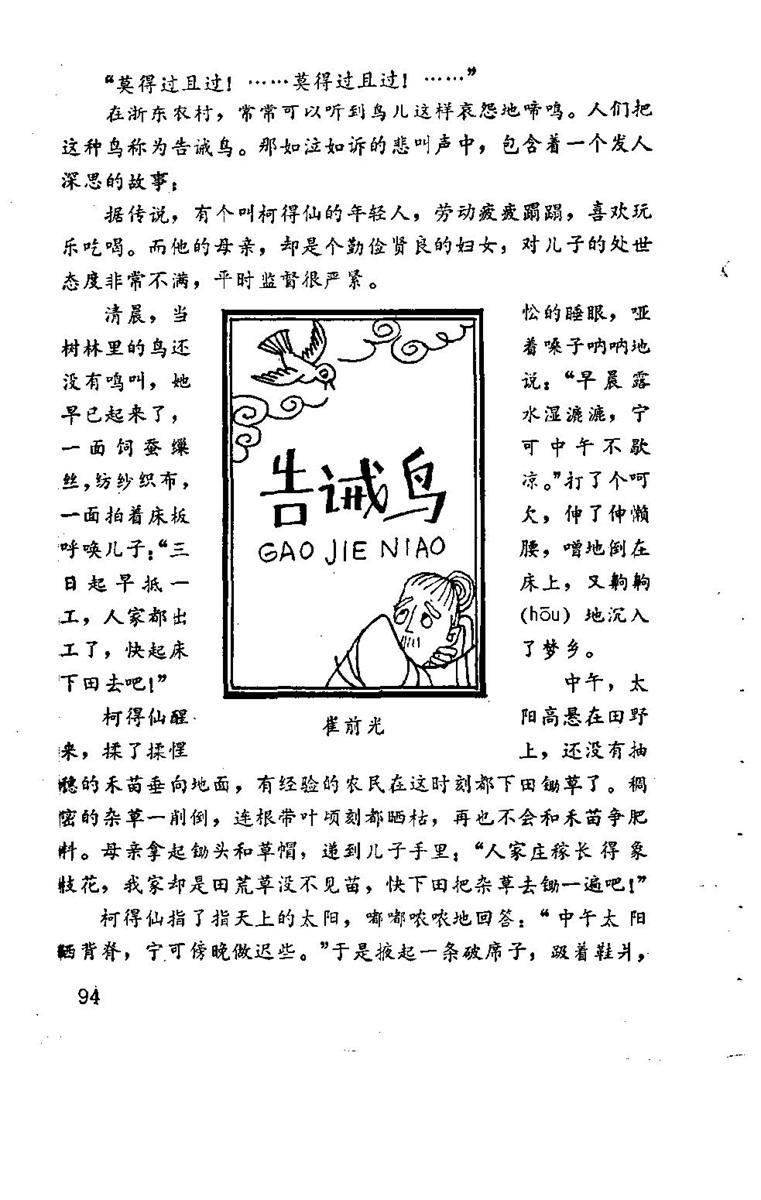 “莫得过且过！……莫得过且过！……”
在浙东农村，常常可以听到鸟儿这样哀怨地啼鸣。人们把
这种鸟称为告诫鸟。那如泣如诉的悲叫声中，包含着一个发人
深思的故事：
据传说，有个叫柯得仙的年轻人，劳动疲疲蹋蹋，喜欢玩
乐吃喝。而他的母亲，却是个勤俭贤良的妇女，对儿子的处世
态度非常不满，平时监督很严紧。
清晨，当
树林里的鸟还
没有鸣叫，她
早已起来了，
一面饲蚕缫
丝，纺纱织布，
一面拍着床板
呼唤儿子：“三
日起早抵一
工，人家都出
工了，快起床
下田去吧！”
柯得仙醒
来，揉了揉惺
告诫鸟
GAO JIE NIAO
崔前光
忪的睡眼，哑
着嗓子呐呐地
说：“早晨露
水湿漉漉，宁
可中午不歇
凉。”打了个呵
欠，伸了伸懒
腰，噌地倒在
床上，又齁齁
(hōu)地沉入
了梦乡。
中午，太
阳高悬在田野
上，还没有抽
穗的禾苗垂向地面，有经验的农民在这时刻都下田锄草了。稠
密的杂草一削倒，连根带叶顷刻都晒枯，再也不会和禾苗争肥
料。母亲拿起锄头和草帽，递到儿子手里：“人家庄稼长得象
枝花，我家却是田荒草没不见苗，快下田把杂草去锄一遍吧！”
柯得仙指了指天上的太阳，嘟嘟哝哝地回答：“中午太阳
晒背脊，宁可傍晚做迟些。”于是掖起一条破席子，趿着鞋爿，
94